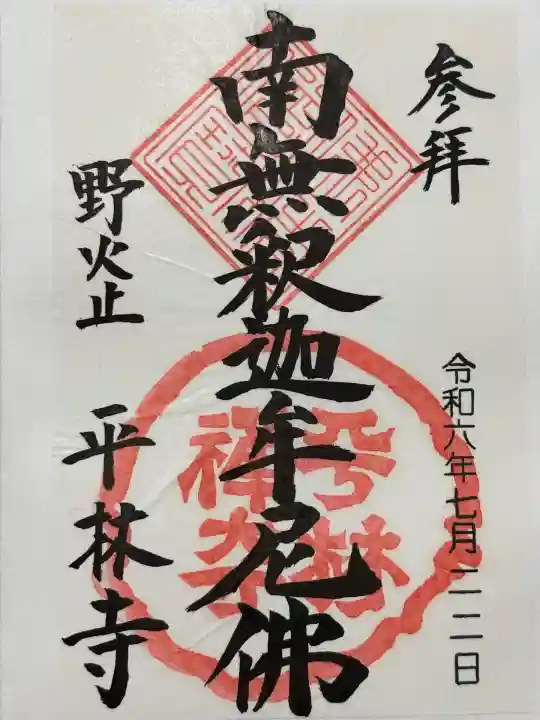 参拜
令和六年七月二二日
南無釈迦牟尼佛
野火止
平林寺
平林
禅寺